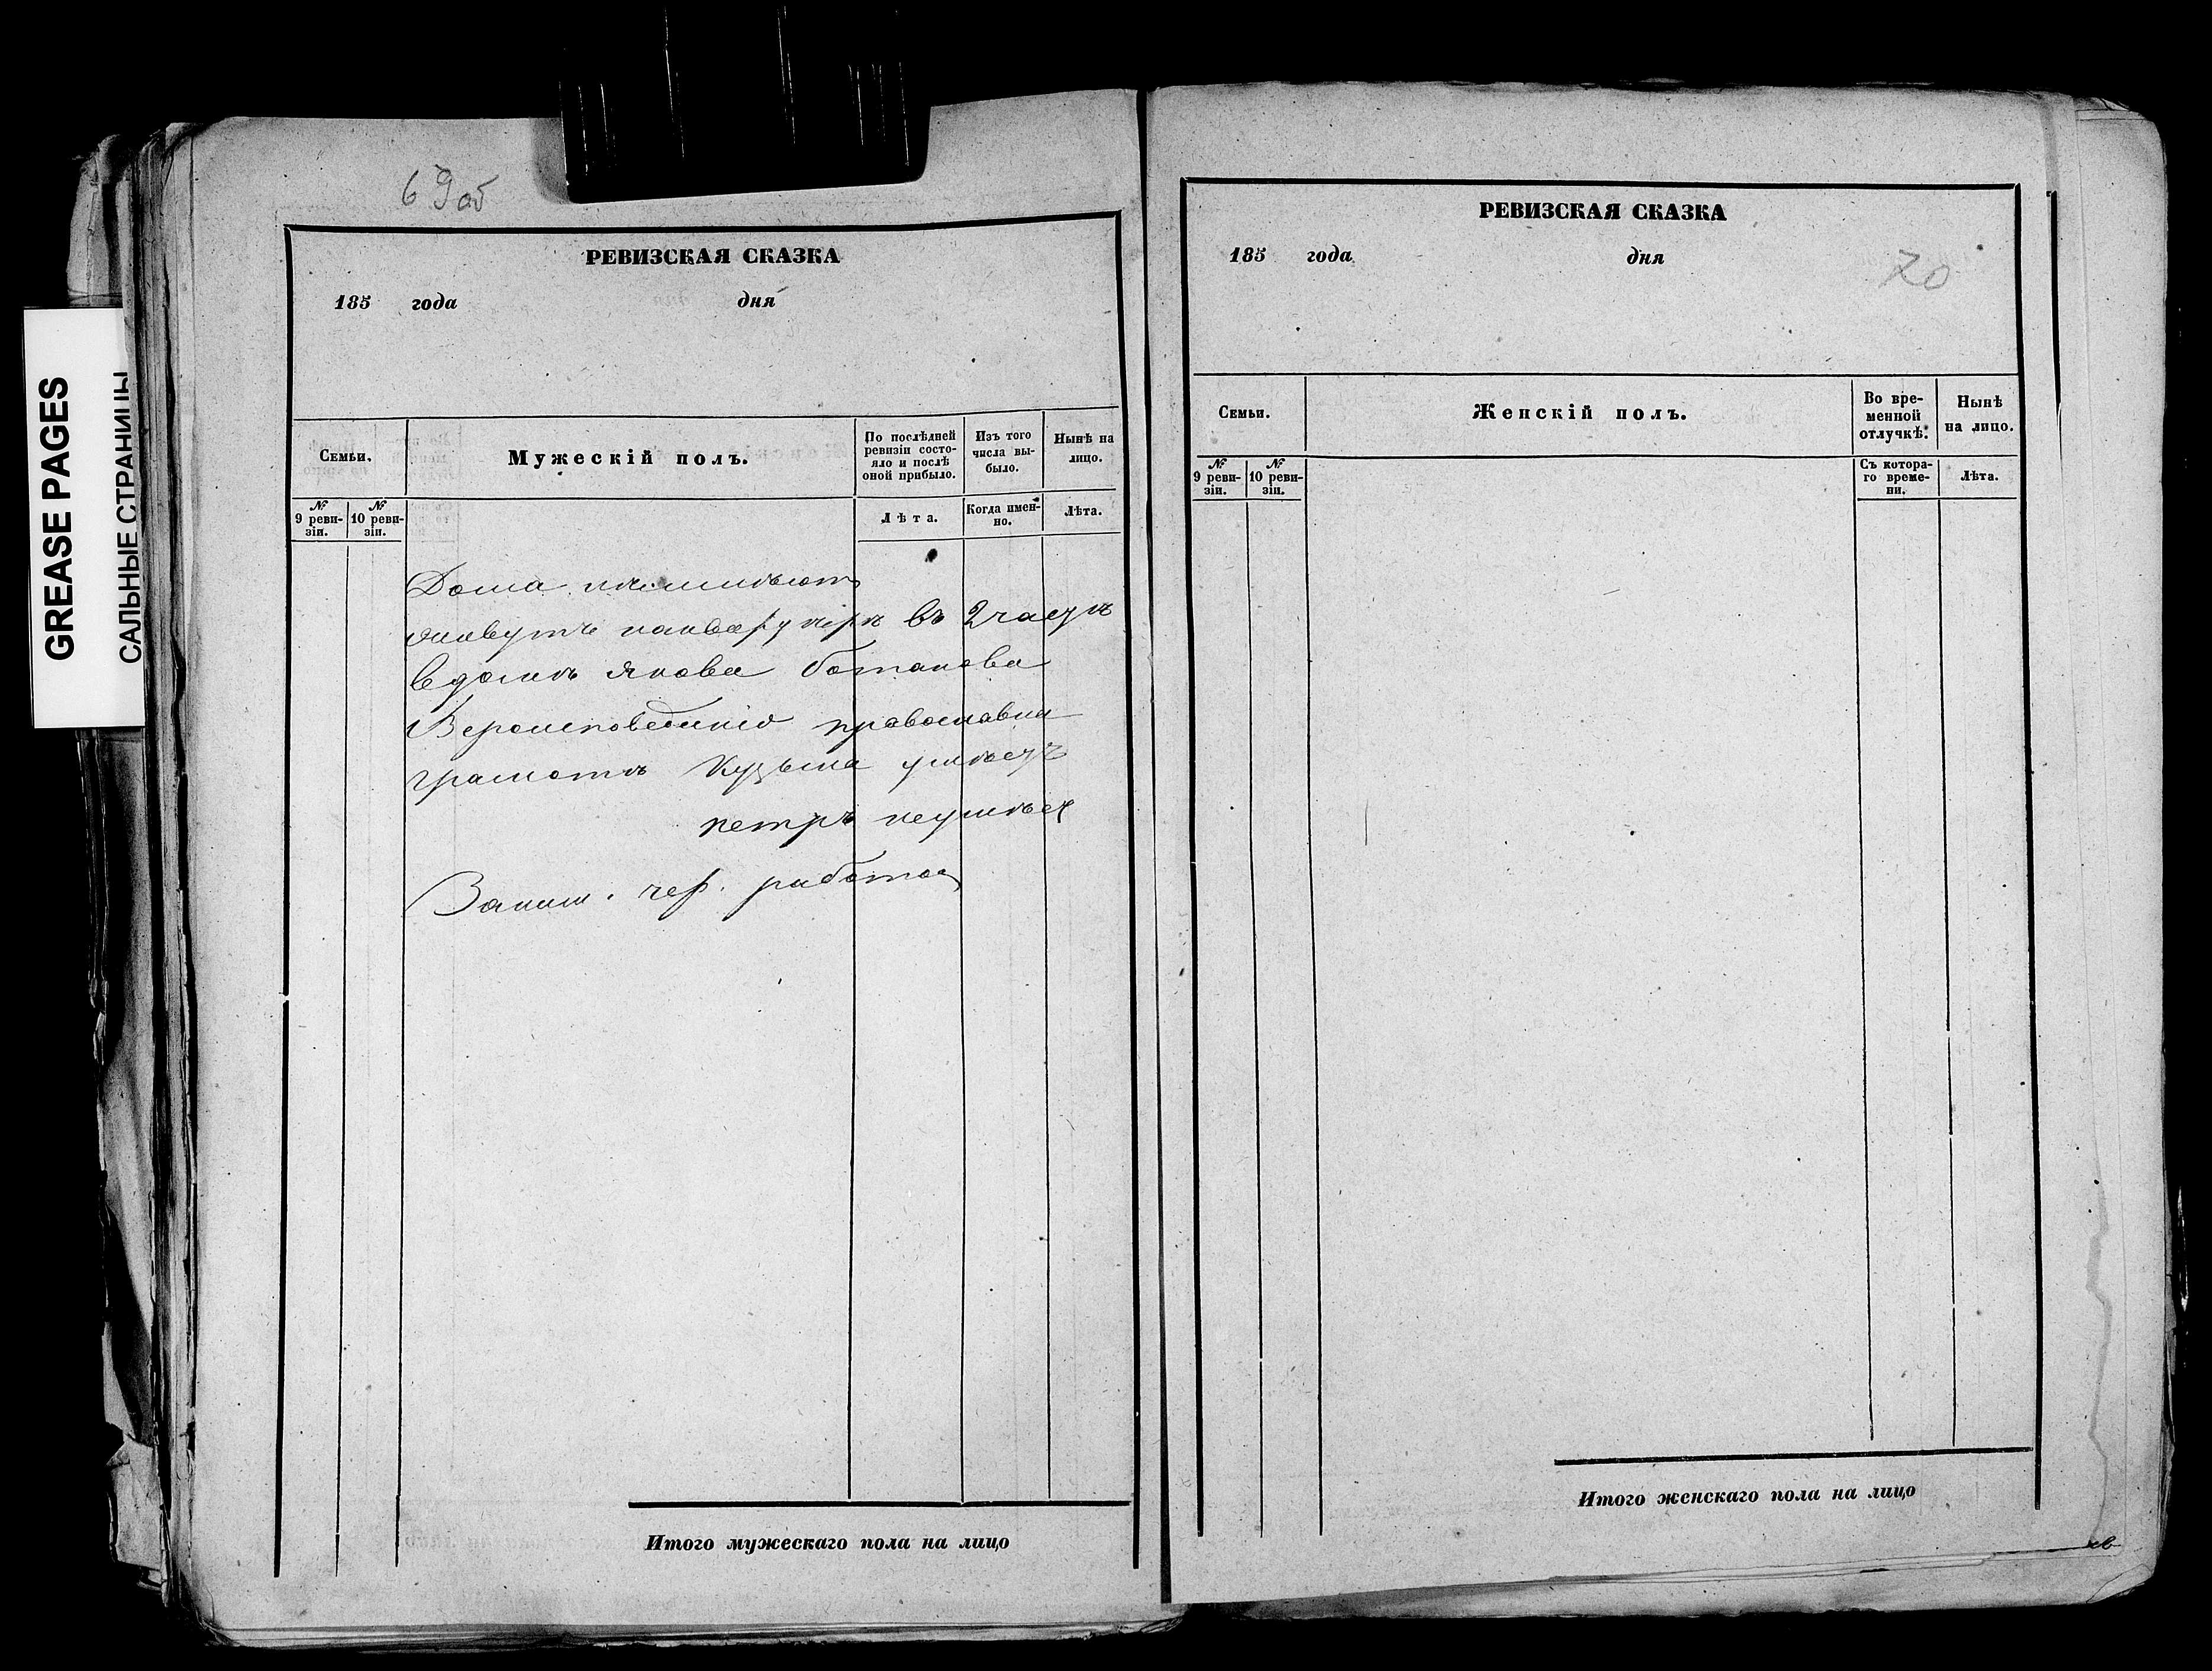 GREASE PAGES
САЛЬНЫЕ СТРАНИЦЫ
69об
РЕВИЗСКАЯ СКАЗКА
185 года дня
Семьи.
Мужескій полъ.
По послѣдней
ревизіи состо-
яло и послѣ
оной прибыло.
Изъ того
числа вы-
было.
Нынѣ на
лицо.
№
9 реви-
зіи.
№
10 реви-
зіи.
Лѣта.
Когда имен-
но.
Лѣта.
Дома неимѣютъ
живутъ наквартирѣ въ 2 частѣ
вдомѣ Якова
Вероисповеданія православна
грамотѣ Кузьма умѣетъ
петръ неумѣет
Заним. чер. работой
Итого мужескаго пола на лицо
РЕВИЗСКАЯ СКАЗКА
185 года дня
70
Семьи.
Женскій полъ.
Во вре-
менной
отлучкѣ.
Нынѣ
на лицо.
№
9 реви-
зіи.
№
10 реви-
зіи.
Съ котора-
го време-
ни.
Лѣта.
Итого женскаго пола на лицо